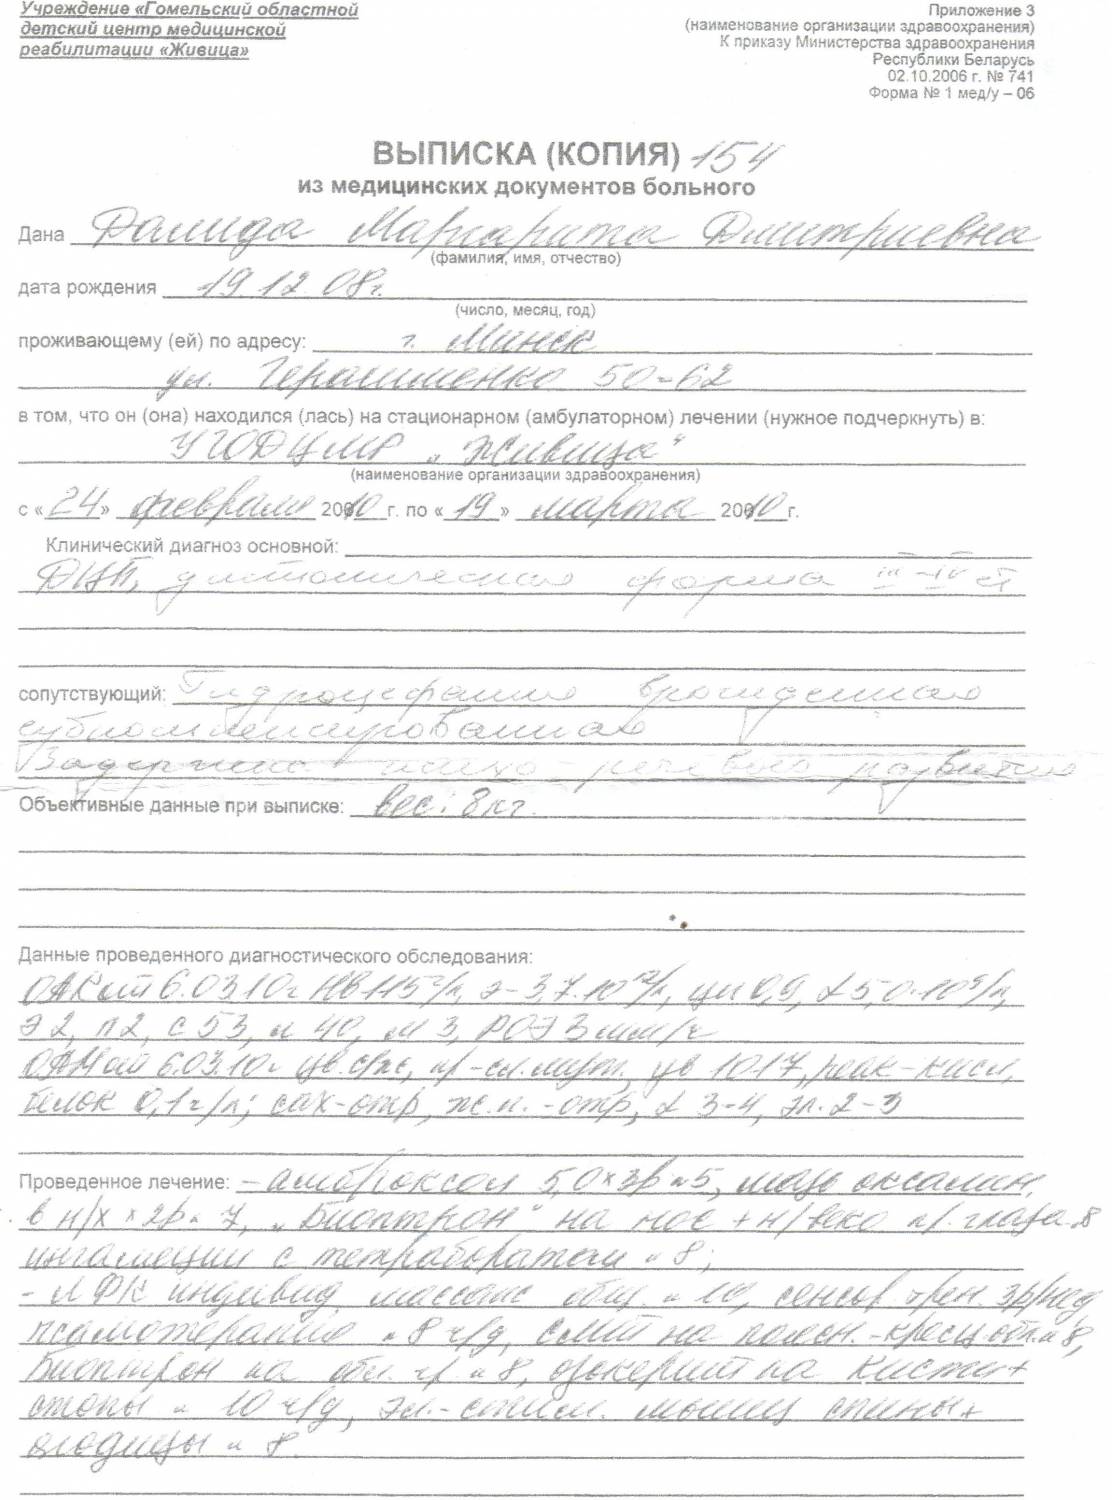 Учреждение «Гомельский областной
детский центр медицинской
реабилитации «Живица»
Приложение 3
(наименование организации здравоохранения)
К приказу Министерства здравоохранения
Республики Беларусь
02.10.2006 г. № 741
Форма № 1 мед/у – 06
ВЫПИСКА (КОПИЯ) 154
из медицинских документов больного
Дана Далида Маргарита Дмитриевна
(фамилия, имя, отчество)
дата рождения 19.12.08г.
(число, месяц, год)
проживающему (ей) по адресу: г. Минск
ул. Герасименко 50-62
в том, что он (она) находился (лась) на стационарном (амбулаторном) лечении (нужное подчеркнуть) в:
УГОДЦМР „Живица“
(наименование организации здравоохранения)
с «24» февраля 2010 г. по «19» марта 2010 г.
Клинический диагноз основной:
ДЦП, форма III-IV ст
сопутствующий: Гидроцефалия врожденная
субкомпенсированная
Задержка психо-речевого развития
Объективные данные при выписке: вес: 8кг.
Данные проведенного диагностического обследования:
ОАК от 6.03.10г НВ 115 г/л, э-3,7·10¹²/л, цп 0,9, L 5,0·10⁹/л,
Э2, п2, с 53, л 40, м 3, РОЭ 3 мм/ч
ОАМ от 6.03.10г цв. с/ж, пр-сл. мутн., ув 1017, реак-кисл,
белок 0,1 г/л; сах-отр, ж.п.-отр, L 3-4, эп. 2-3
Проведенное лечение: - амброксол 5,0 х 3р №5, мазь оксолин.
в н/х х 2р № 7, „Биоптрон“ на нос + н/веко пр. глаза №8
ингаляции с тетраборатом № 8;
- ЛФК индивид, массаж общ. № 10, сенсор. трен.
псаммотерапия №8 ч/д, СМТ на поясн.-кресц. обл. №8,
Биоптрон на обл. № 8, озокерит на кисти +
стопы № 10 ч/д, эл.-стим. мышц спины +
ягодицы № 8.